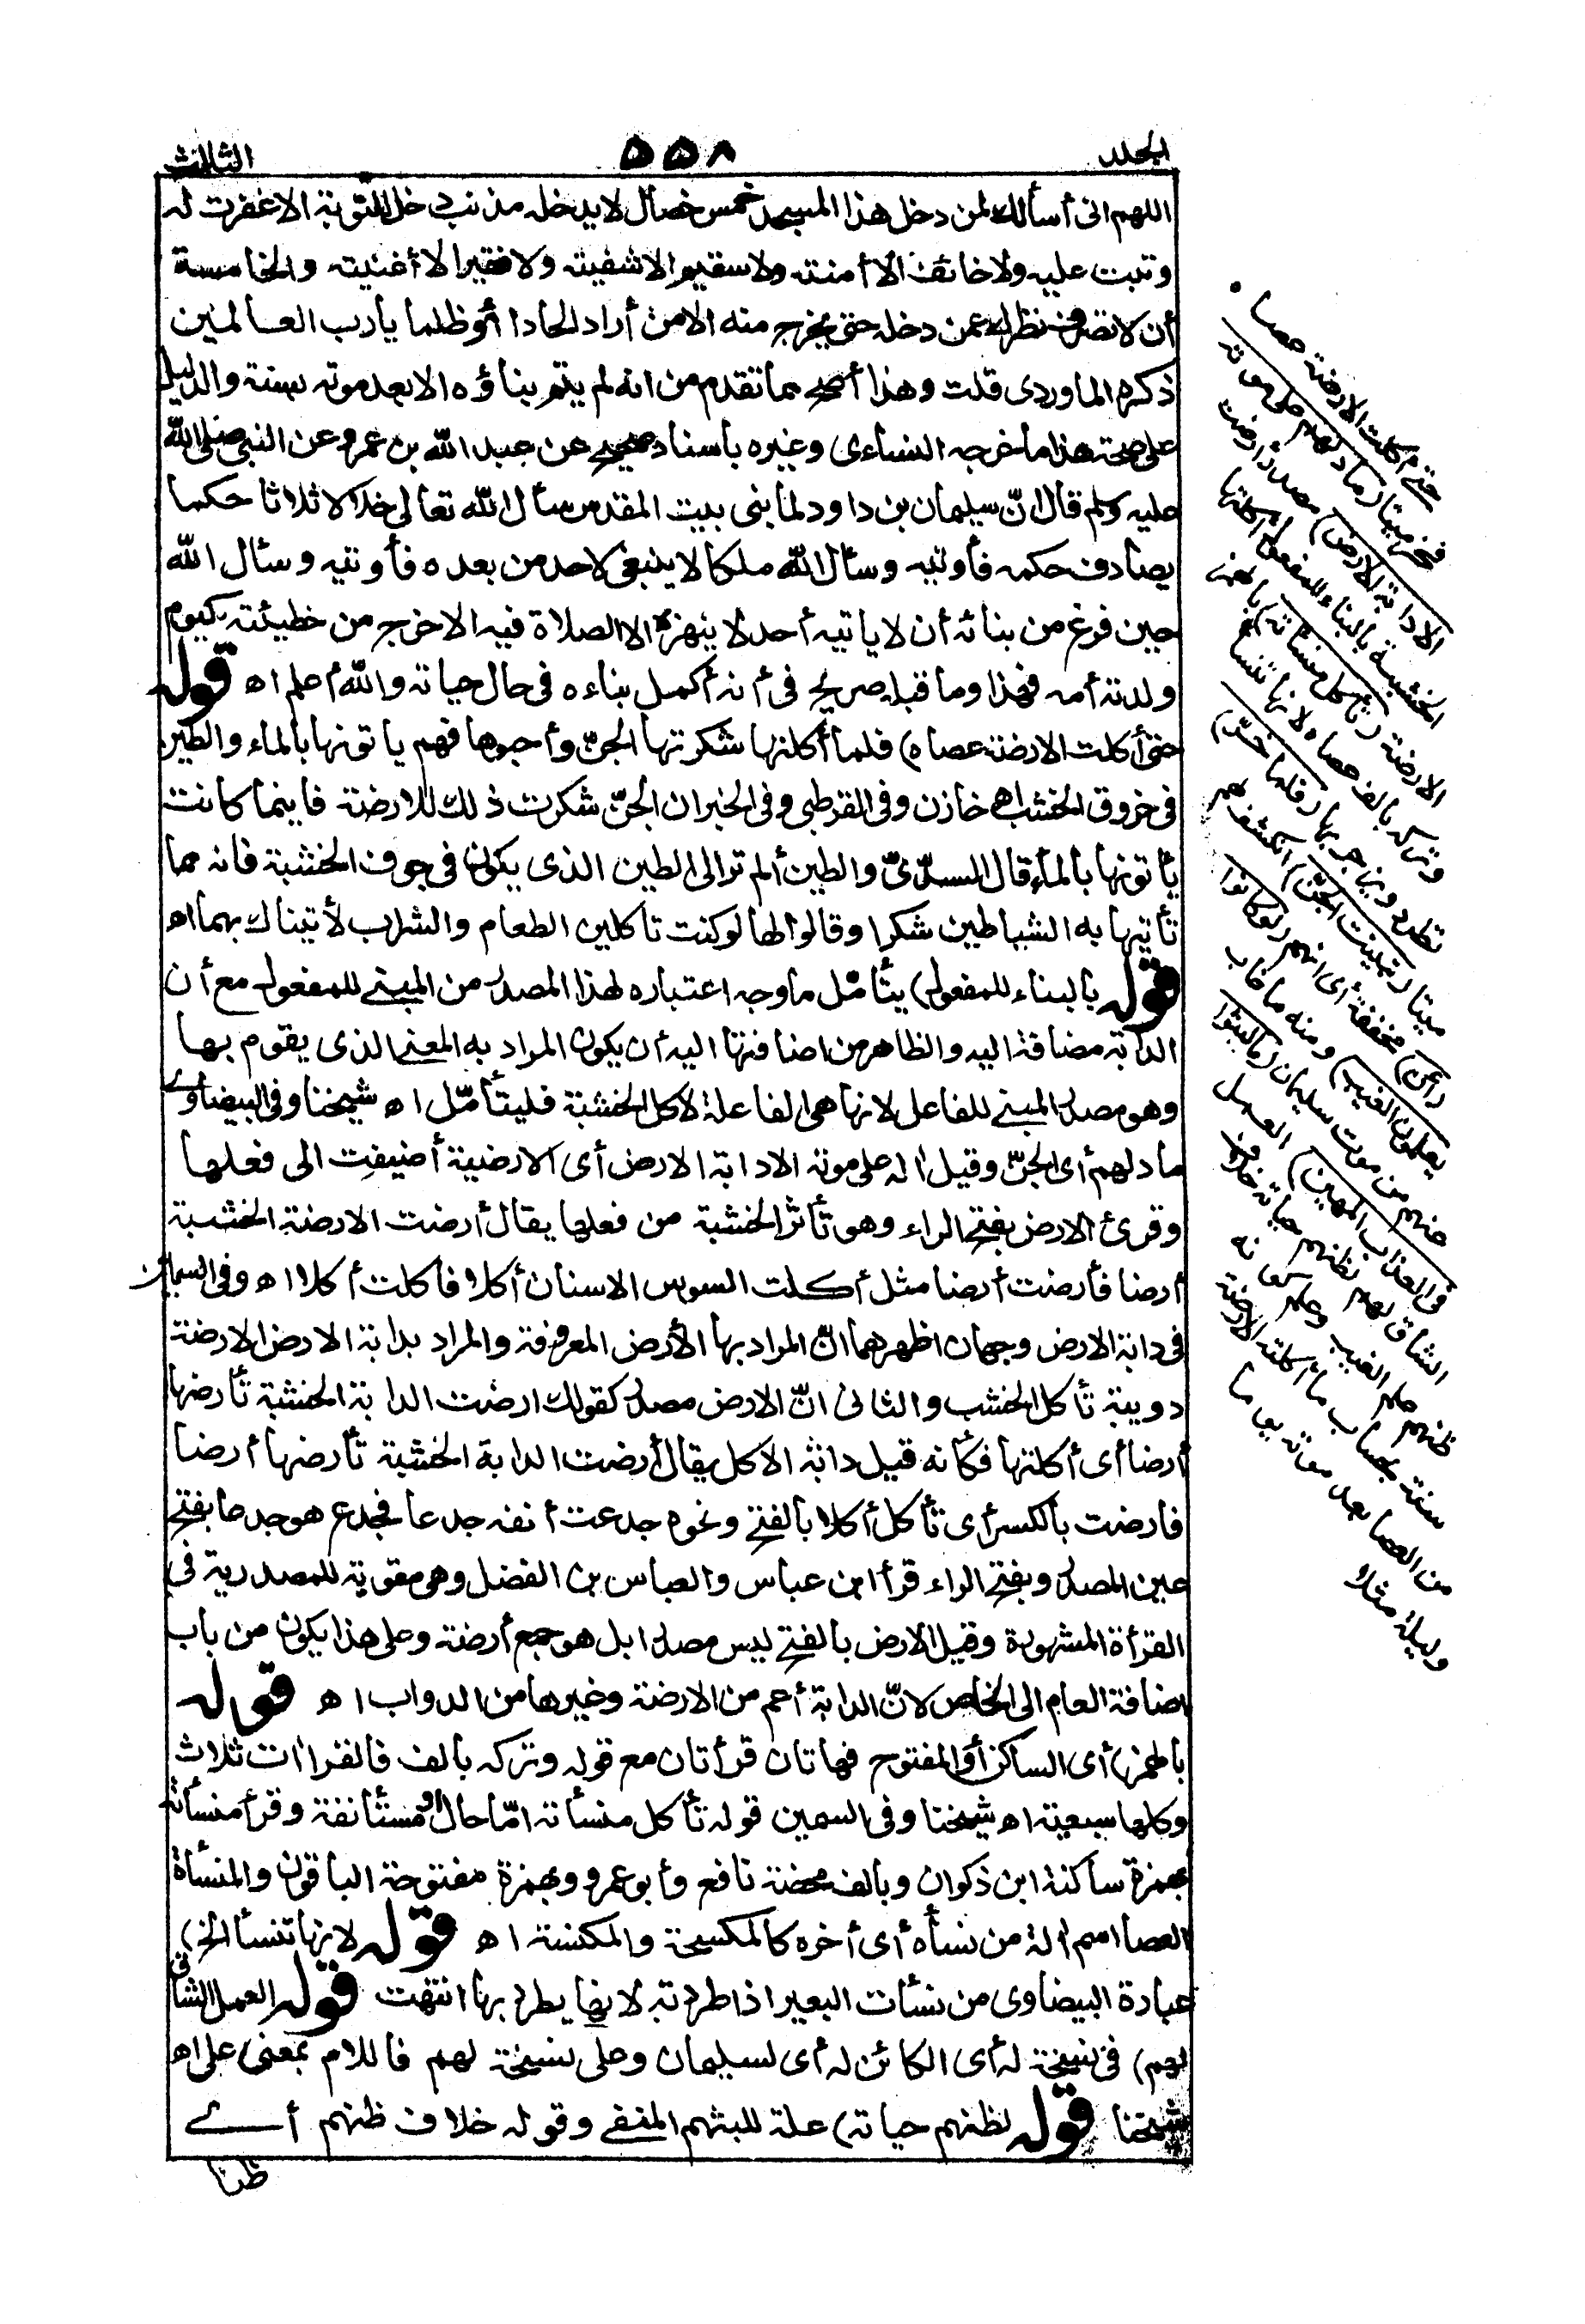 المجلد
٥٥٨
الثالث
اللهم انى أسألك لمن دخل هذا المسجد خمس خصال لا يدخله مذنب دخل للتوبة الا غفرت له
وتبت عليه ولا خائف الا أمنته ولا سقيم الا شفيته ولا فقير الا أغنيته والخامسة
أن لا تصرف نظرك عمن دخله حتى يخرج منه الا من أراد الحادا أو ظلما يا رب العالمين
ذكره الماوردى قلت وهذا أصح مما تقدم من انه لم يتم بناؤه الا بعد موته بسنة والدليل
على صحة هذا ما خرجه النساءى وغيره باسناد صحيح عن عبد الله بن عمرو عن النبى صلى الله
عليه وسلم قال انّ سليمان بن داود لما بنى بيت المقدس سأل الله تعالى خلالا ثلاثا حكما
يصادف حكمه فأوتيه وسأل الله ملكا لا ينبغى لاحد من بعده فأوتيه وسأل الله
حين فرغ من بنائه أن لا ياتيه أحد لا ينهزه الا الصلاة فيه الا خرج من خطيئته كيوم
ولدته أمه فهذا وما قبله صريح فى أنه أكمل بناءه فى حال حياته والله أعلم اه قوله
حتى أكلت الارضة عصاه) فلما أكلتها شكرتها الجنّ وأحبوها فهم ياتونها بالماء والطين
فى خروق الخشب اه خازن وفى القرطبى وفى الخبر ان الجنّ شكرت ذلك للارضة فاينما كانت
يأتونها بالماء قال السدّىّ والطين ألم تر الى الطين الذى يكون فى جوف الخشبة فانه مما
تأتيها به الشياطين شكرا وقالوا لها لو كنت تاكلين الطعام والشراب لأتيناك بهما اه
قوله بالبناء للمفعول) يتأمّل ما وجه اعتباره لهذا المصدر من المبنى للمفعول مع أن
الدابة مضافة اليه والظاهر من اضافتها اليه أن يكون المراد به المعنى الذى يقوم بها
وهو مصدر المبنى للفاعل لانها هى الفاعلة لاكل الخشبة فليتأمّل اه شيخنا وفى البيضاوى
ما دلهم أى الجنّ وقيل اله على موته الا دابة الارض أى الارضية أضيفت الى فعلها
وقرئ الارض بفتح الراء وهو تأثر الخشبة من فعلها يقال أرضت الارضة الخشبة
أرضا فأرضت أرضا مثل أكلت السوس الاسنان أكلا فأكلت أكلا اه وفى السمين
فى دابة الارض وجهان اظهرهما انّ المراد بها الأرض المعروفة والمراد بدابة الارض الارضة
دويبة تأكل الخشب والثانى انّ الارض مصدر كقولك ارضت الدابة الخشبة تأرضها
أرضا أى أكلتها فكأنه قيل دابة الاكل يقال أرضت الدابة الخشبة تأرضها أرضا
فارضت بالكسر أى تأكل أكلا بالفتح ونحوه جدعت أنفه جدعا فجدع هو جدعا بفتح
عين المصدر وبفتح الراء قرأ ابن عباس والعباس بن الفضل وهى مقوّية للمصدرية فى
القرأة المشهورة وقيل الارض بالفتح ليس مصدرا بل هو جمع أرضة وعلى هذا يكون من باب
اضافة العام الى الخاص لانّ الدابة أعم من الارضة وغيرها من الدواب اه قوله
بالهمز) أى الساكن أو المفتوح فهاتان قرأتان مع قوله وتركه بالف فالقراات ثلاث
وكلها سبعية اه شيخنا وفى السمين قوله تأكل منسأته امّا حال أو مستأنفة وقرأ منسأته
بهمزة ساكنة ابن ذكوان وبالف محضة نافع وأبو عمرو وبهمزة مفتوحة الباقون والمنسأة
العصا اسم آلة من نسأه أى أخره كالمكسحة والمكنسة اه قوله لانها تنسأ الخ)
عبارة البيضاوى من نسأت البعير اذا طردته لانها يطرد بها انتهت قوله العمل الشاق
لهم) فى نسخة له أى الكائن له أى لسليمان وعلى نسخة لهم فاللام بمعنى على اه
شيخنا قوله لظنهم حياته) علة للبثهم المنفى وقوله خلاف ظنهم أى
ظنا
حتى أكلت الارضة عصاه
فخر ميتا (ما دلهم على موته
الا دابة الارض) مصدر أرضت
الخشبة بالبناء للمفعول أكلتها
الارضة (تأكل منسأته) بالهمز
وتركه بالف عصاه لانها تنسأ
تطرد ويزجر بها (فلما خرّ)
ميتا (تبينت الجنّ) انكشف لهم
(أن) مخففة أى انهم (لو كانوا
يعلمون الغيب) ومنه ما غاب
عنهم من موت سليمان (ما لبثوا
فى العذاب المهين) العمل
الشاق لهم لظنهم حياته خلاف
ظنهم علم الغيب وعلم كونه
سنة بحساب ما أكلته الارضة
من العصا بعد موته يوما
وليلة مثلا